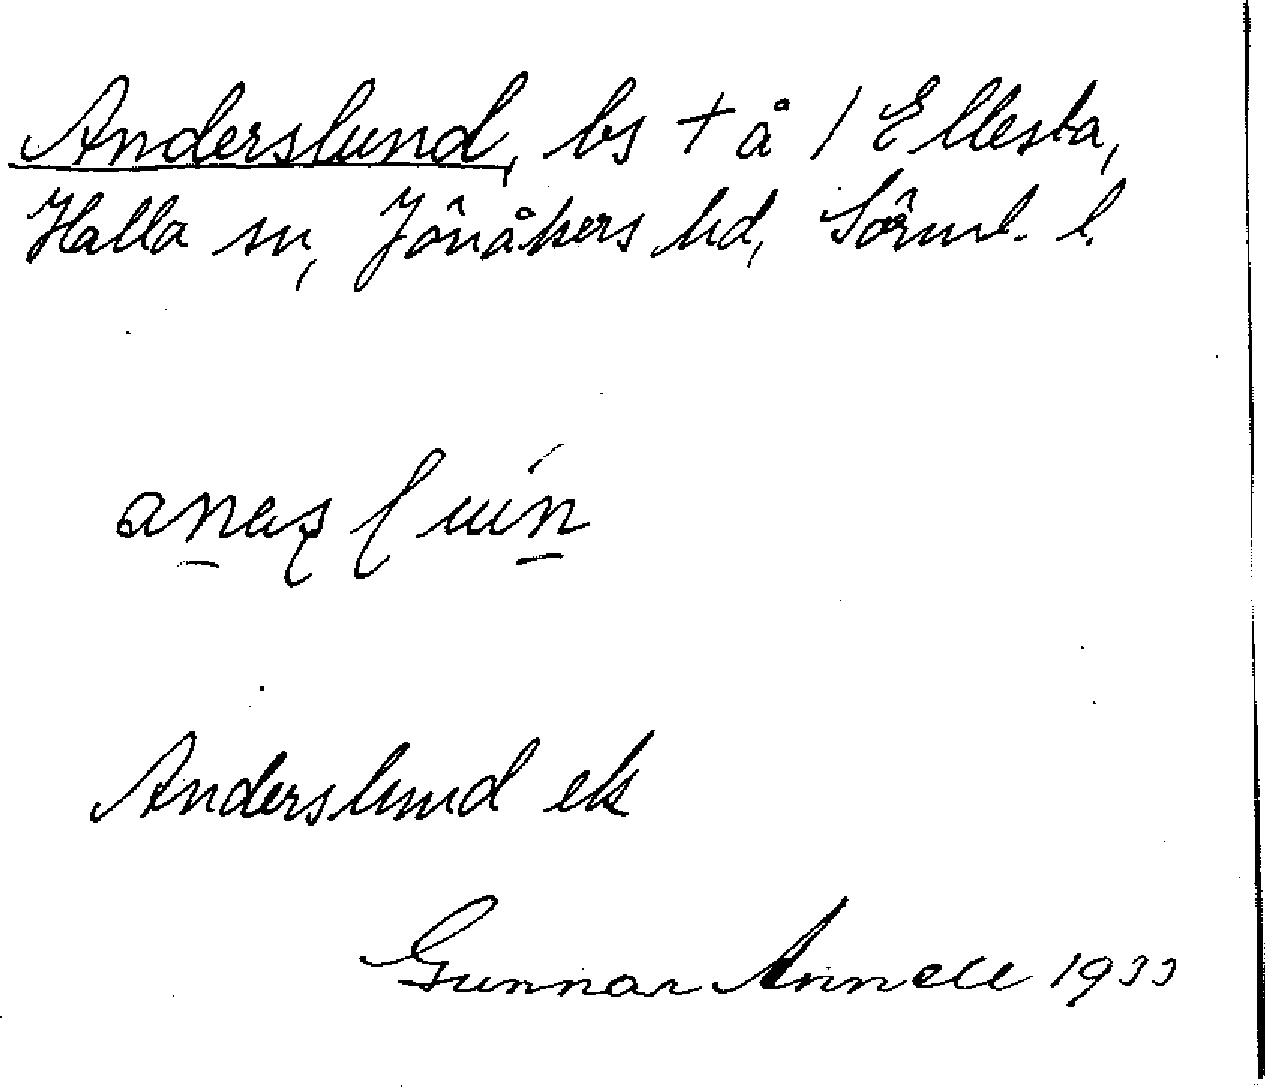 Anderslund, bs + å / Ellesta,
Halla sn, Jönåkers hd, Sörml. l.
Anderslund ek
Gunnar Annell 1933